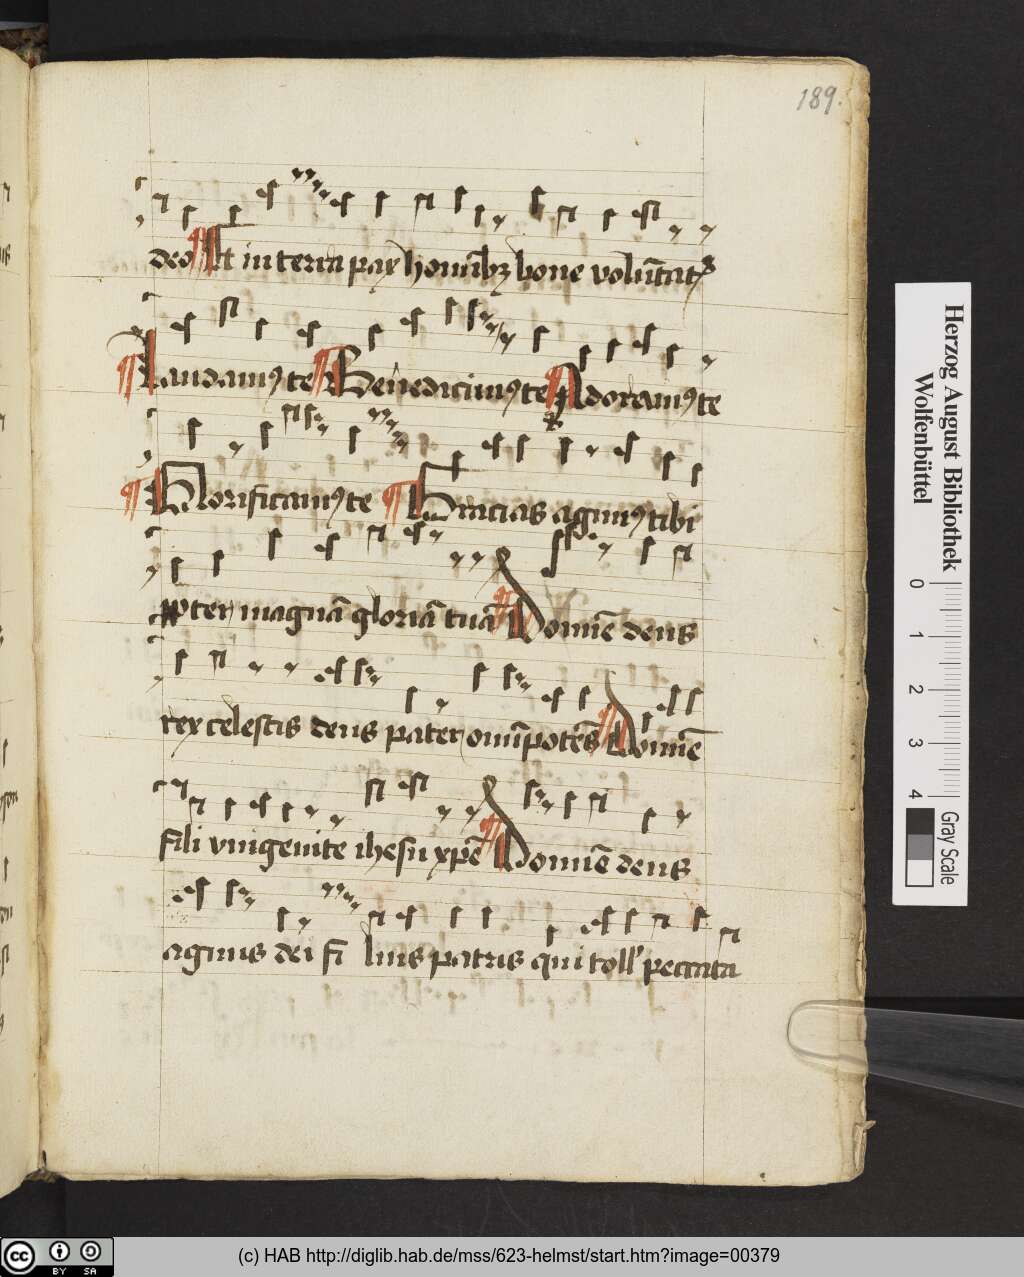 189.
deo Et in terra pax hominibꝫ bone volūtatꝭ
Laudamꝰ te Benedicimꝰ te Adoramꝰ te
Glorificamꝰ te Gracias agimꝰ tibi
ꝓpter magnā gloriā tuā Domīe deus
rex celestis deus pater om̄ipotēs Domīe
fili vnigenite ihesu xp̄e Domīe deus
agnus dei fi lius patris qui toll' peccata
Herzog August Bibliothek
Wolfenbüttel
0 1 2 3 4
Gray Scale
cc BY SA
(c) HAB http://diglib.hab.de/mss/623-helmst/start.htm?image=00379